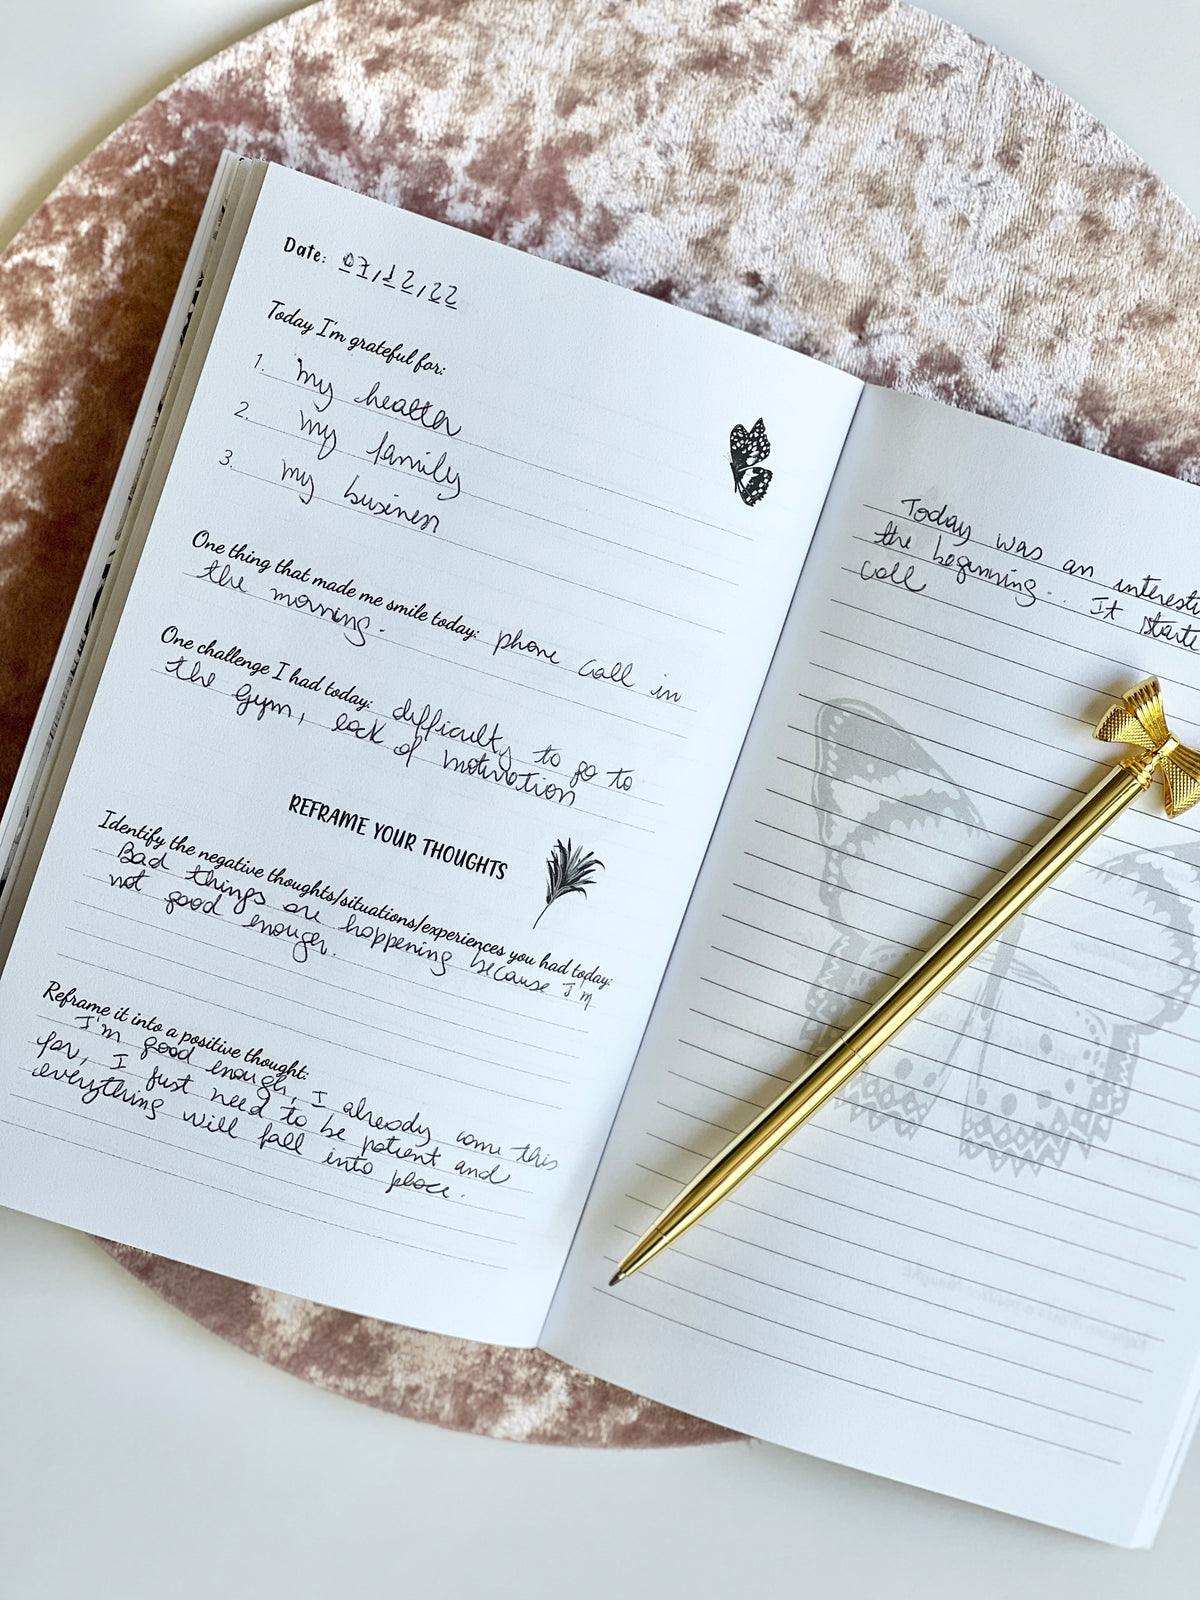 Date: 07,12,22
Today I'm grateful for:
1. my health
2. my family
3. my business
One thing that made me smile today: phone call in
the morning.
One challenge I had today: difficulty to go to
the gym, lack of motivation
REFRAME YOUR THOUGHTS
Identify the negative thoughts/situations/experiences you had today:
Bad things are happening because I'm
not good enough.
Reframe it into a positive thought:
I'm good enough, I already come this
far, I just need to be patient and
everything will fall into place.
Today was an interesti
the beginning.. It starte
call